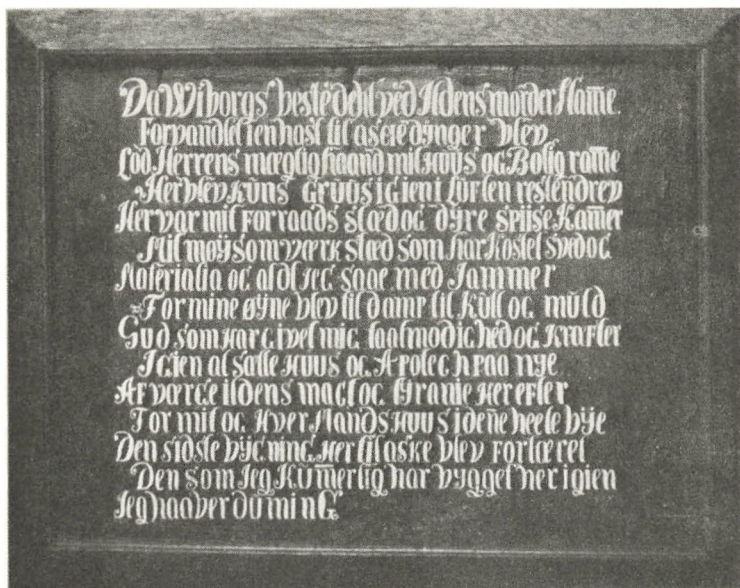 Da Wiborgs beste deel ved Ildens morder flam̅e
Forvandlet i en hast til aske dynger blev
Lod Herrens mægtig haand mit Huus og Bolig ram̅e
Her blev kuns Gruus igien i Luften resten drev
Her var mit Forraads stæd og dyre Spiise Kam̅er
Mit møysom værk stæd som har kostet sved og
Materialia og alt jeg saae med Jammer
For mine øyne blev til damp til Kull og muld
Gud som har givet mig taalmodighed og Kræfter
Igien at sætte Huus og Apotech paa nye
Afværge ildens magt og tyranie herefter
For mit og Hver Mands Huus i den̅e heele bye
Den sidste bygning her til aske blev fortæret
Den som Jeg Kum̅erlig har bygget her igien
Jeg haaber du min G